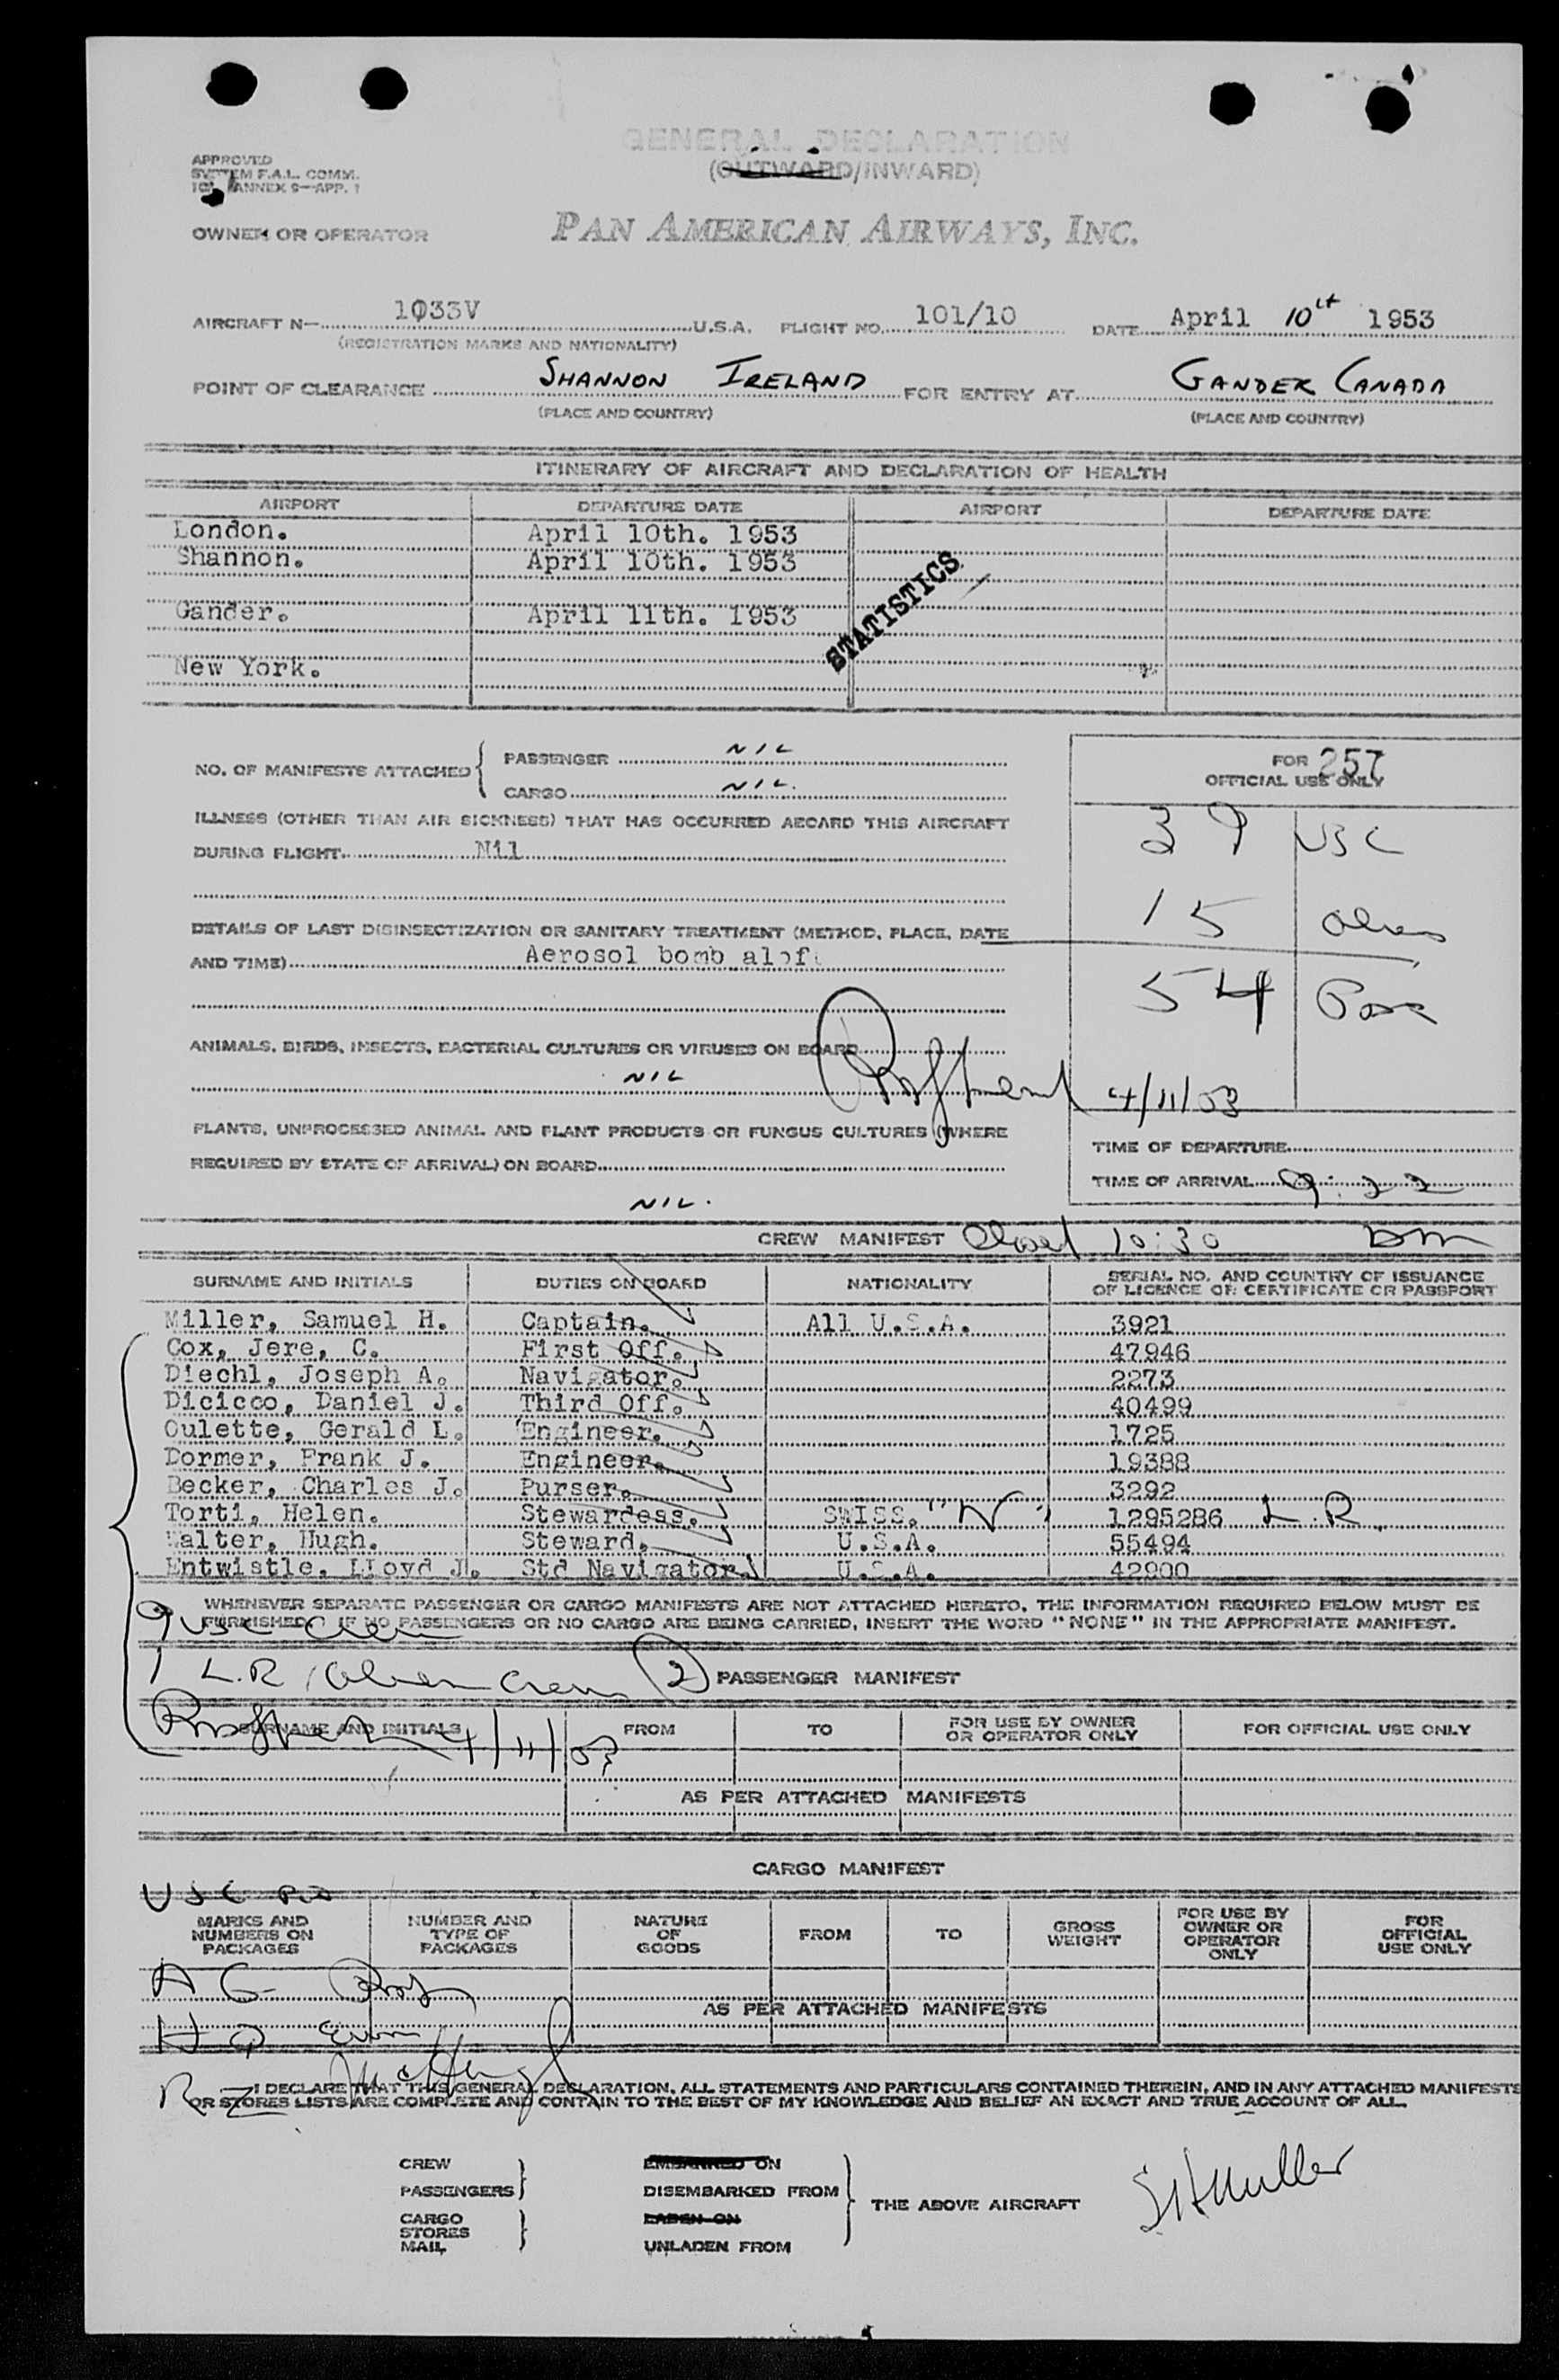 GENERAL DECLARATION
(OUTWARD/INWARD)
APPROVED
SYSTEM F.A.L. COMM.
ANNEX 9—APP. 1
OWNER OR OPERATOR PAN AMERICAN AIRWAYS, INC.
AIRCRAFT N— 1033V U.S.A. FLIGHT NO. 101/10 DATE April 10th 1953
(REGISTRATION MARKS AND NATIONALITY)
POINT OF CLEARANCE SHANNON IRELAND FOR ENTRY AT GANDER CANADA
(PLACE AND COUNTRY) (PLACE AND COUNTRY)
ITINERARY OF AIRCRAFT AND DECLARATION OF HEALTH
AIRPORT DEPARTURE DATE AIRPORT DEPARTURE DATE
London. April 10th. 1953
Shannon. April 10th. 1953
STATISTICS
Gander. April 11th. 1953
New York.
NO. OF MANIFESTS ATTACHED { PASSENGER NIL
CARGO NIL.
FOR 257
OFFICIAL USE ONLY
ILLNESS (OTHER THAN AIR SICKNESS) THAT HAS OCCURRED ABOARD THIS AIRCRAFT
DURING FLIGHT Nil
39 USC
15 Aliens
54 Pass
DETAILS OF LAST DISINSECTIZATION OR SANITARY TREATMENT (METHOD, PLACE, DATE
AND TIME) Aerosol bomb aloft
ANIMALS, BIRDS, INSECTS, BACTERIAL CULTURES OR VIRUSES ON BOARD
NIL
4/11/53
PLANTS, UNPROCESSED ANIMAL AND PLANT PRODUCTS OR FUNGUS CULTURES (WHERE
REQUIRED BY STATE OF ARRIVAL) ON BOARD
NIL.
TIME OF DEPARTURE
TIME OF ARRIVAL 9:22
CREW MANIFEST Closed 10:30
SURNAME AND INITIALS DUTIES ON BOARD NATIONALITY SERIAL NO. AND COUNTRY OF ISSUANCE
OF LICENCE OR CERTIFICATE OR PASSPORT
Miller, Samuel H. Captain. All U.S.A. 3921
Cox, Jere, C. First Off. 47946
Diechl, Joseph A. Navigator. 2273
Dicicco, Daniel J. Third Off. 40499
Oulette, Gerald L. Engineer. 1725
Dormer, Frank J. Engineer. 19388
Becker, Charles J. Purser. 3292
Torti, Helen. Stewardess. SWISS. "N" 1295286 L.R.
Walter, Hugh. Steward. U.S.A. 55494
Entwistle, Lloyd J. Std Navigator. U.S.A. 42900
WHENEVER SEPARATE PASSENGER OR CARGO MANIFESTS ARE NOT ATTACHED HERETO, THE INFORMATION REQUIRED BELOW MUST BE
FURNISHED. IF NO PASSENGERS OR NO CARGO ARE BEING CARRIED, INSERT THE WORD "NONE" IN THE APPROPRIATE MANIFEST.
9 USC Crew
1 L.R. Alien Crew (2) PASSENGER MANIFEST
SURNAME AND INITIALS FROM TO FOR USE BY OWNER
OR OPERATOR ONLY FOR OFFICIAL USE ONLY
4/11/53
AS PER ATTACHED MANIFESTS
CARGO MANIFEST
USC
MARKS AND
NUMBERS ON
PACKAGES
NUMBER AND
TYPE OF
PACKAGES
NATURE
OF
GOODS
FROM TO
GROSS
WEIGHT
FOR USE BY
OWNER OR
OPERATOR
ONLY
FOR
OFFICIAL
USE ONLY
AS PER ATTACHED MANIFESTS
I DECLARE THAT THIS GENERAL DECLARATION, ALL STATEMENTS AND PARTICULARS CONTAINED THEREIN, AND IN ANY ATTACHED MANIFESTS
OR STORES LISTS ARE COMPLETE AND CONTAIN TO THE BEST OF MY KNOWLEDGE AND BELIEF AN EXACT AND TRUE ACCOUNT OF ALL.
CREW
PASSENGERS
CARGO
STORES
MAIL
EMBARKED ON
DISEMBARKED FROM
LADEN ON
UNLADEN FROM
THE ABOVE AIRCRAFT
SH Miller